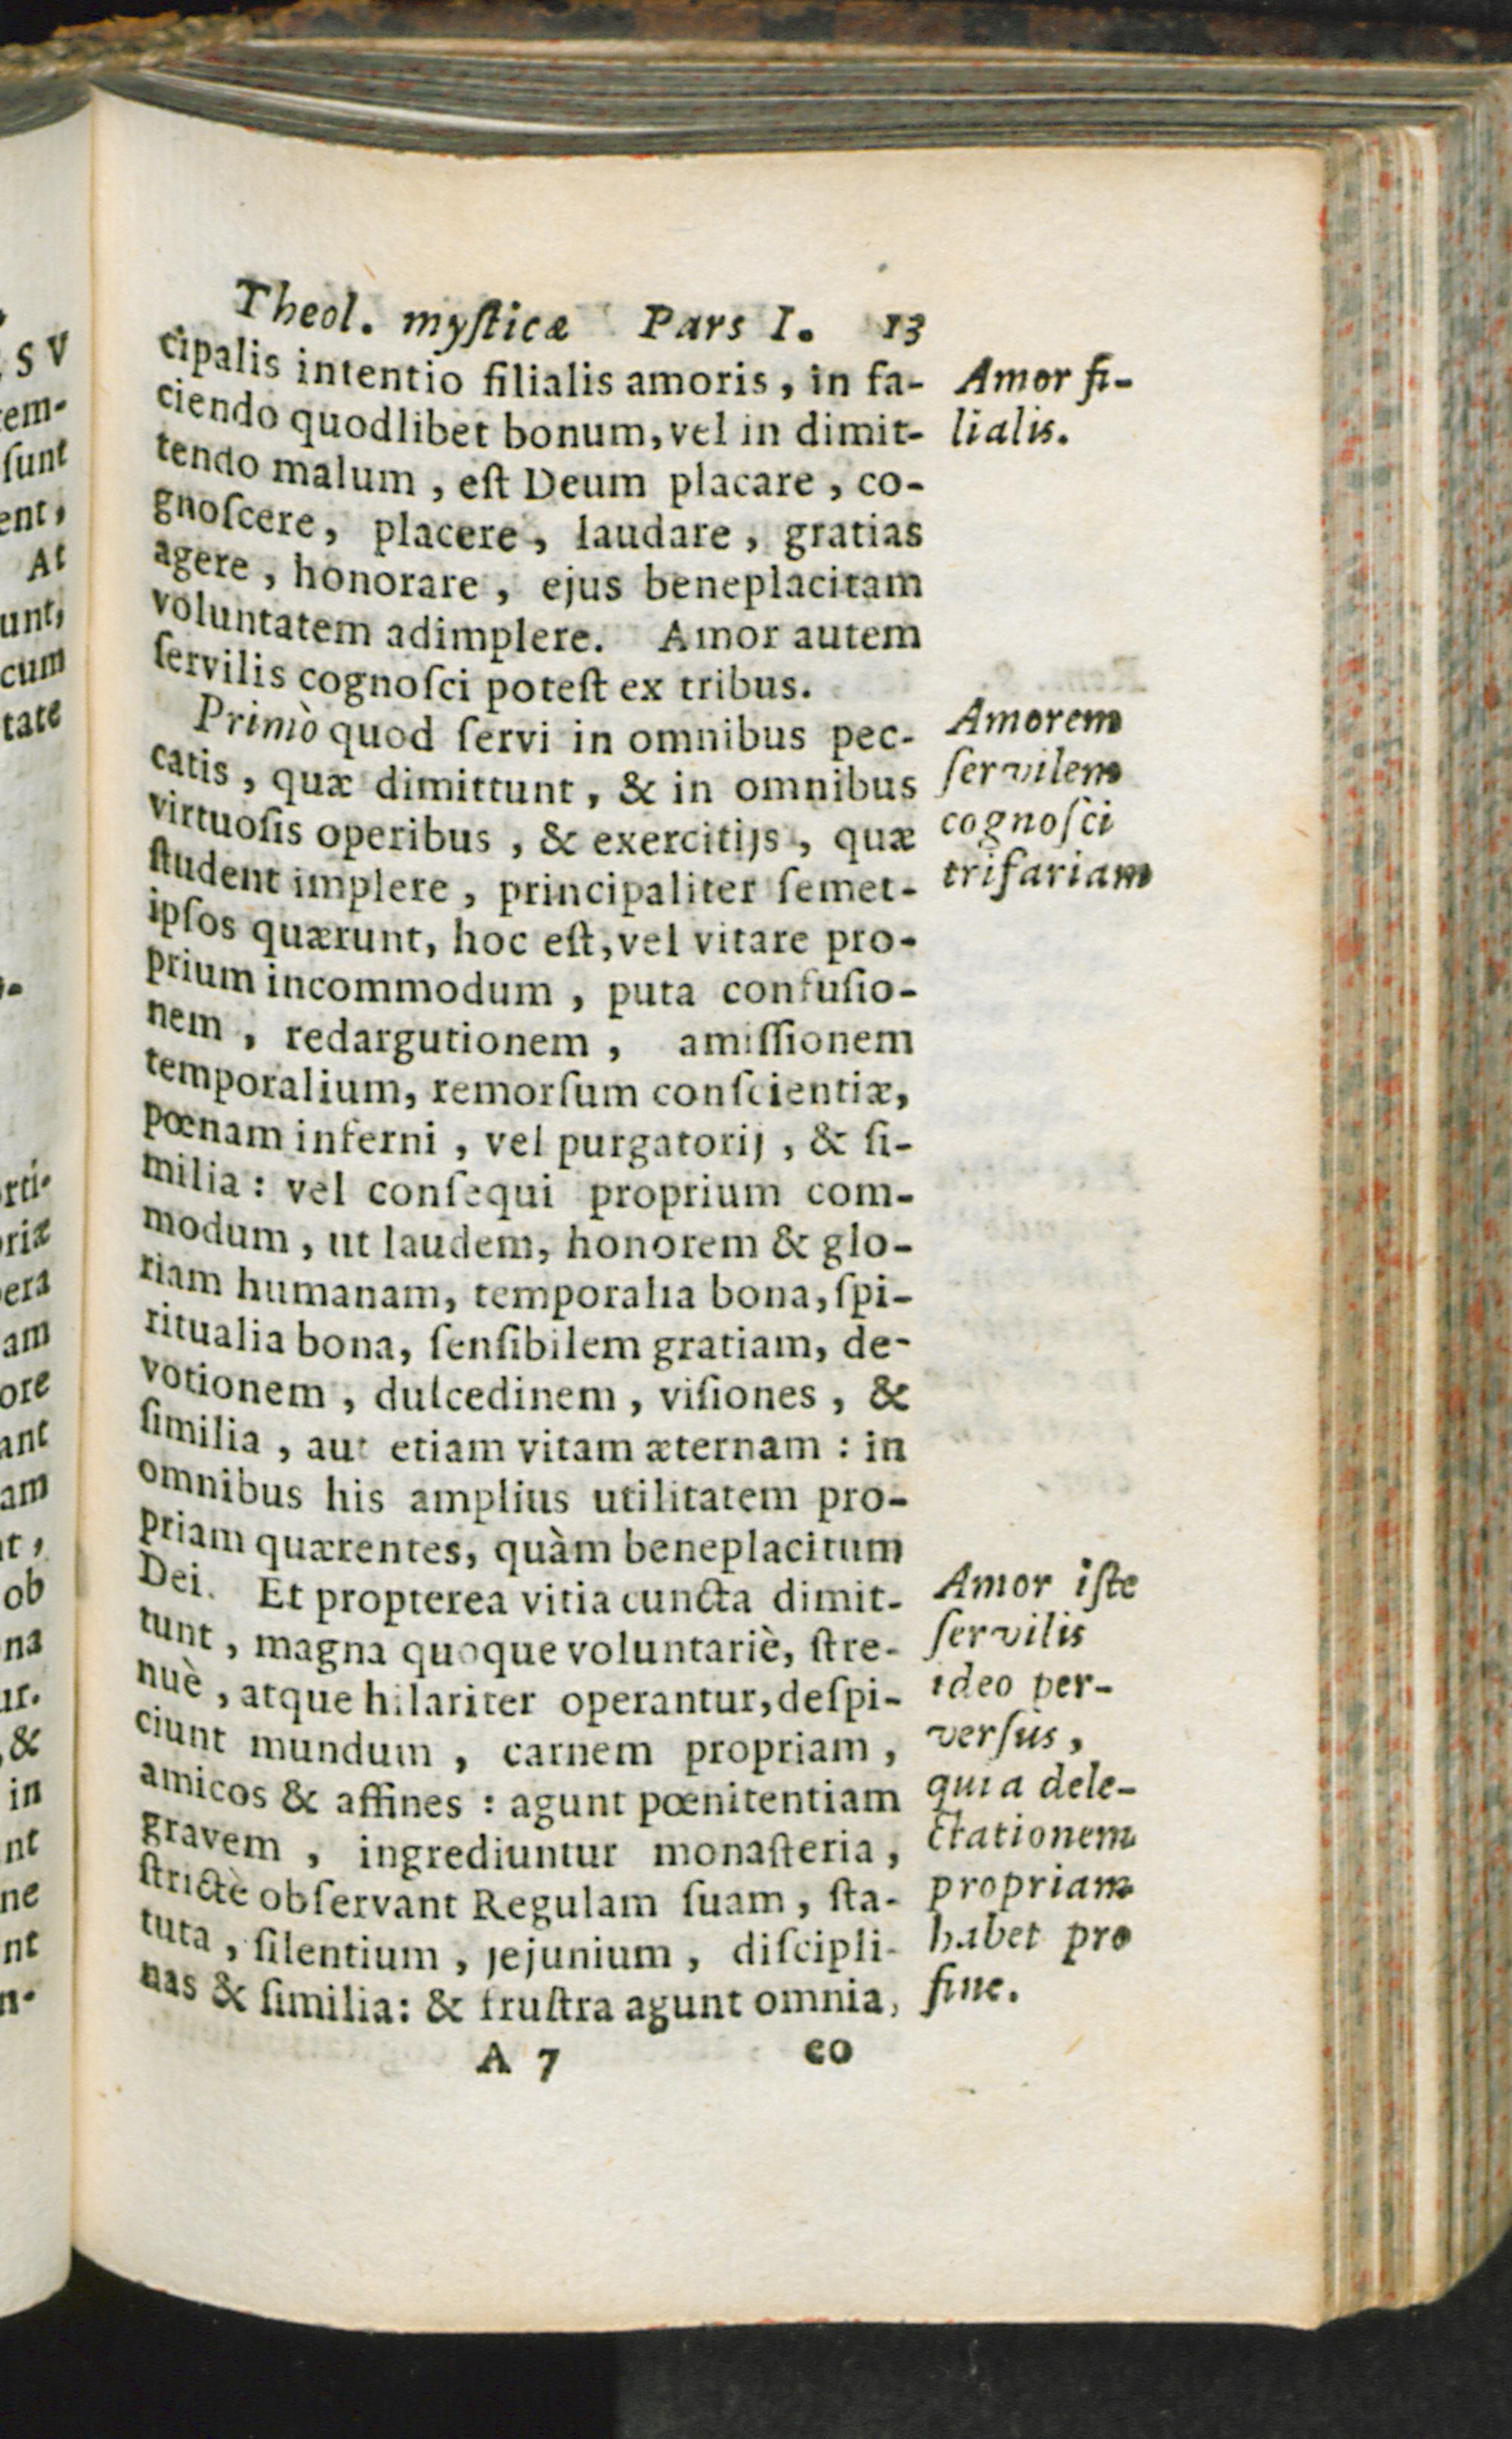 Theol. myſticæ Pars I. 13
cipalis intentio filialis amoris, in fa-
ciendo quodlibet bonum, vel in dimit-
tendo malum, eſt Deum placare, co-
gnoſcere, placere, laudare, gratias
agere, honorare, ejus beneplacitam
voluntatem adimplere. Amor autem
ſervilis cognoſci poteſt ex tribus.
Primò quod ſervi in omnibus pec-
catis, quæ dimittunt, & in omnibus
virtuoſis operibus, & exercitijs, quæ
ſtudent implere, principaliter ſemet-
ipſos quærunt, hoc eſt, vel vitare pro-
prium incommodum, puta confuſio-
nem, redargutionem, amiſſionem
temporalium, remorſum conſcientiæ,
pœnam inferni, vel purgatorij, & ſi-
milia: vel conſequi proprium com-
modum, ut laudem, honorem & glo-
riam humanam, temporalia bona, ſpi-
ritualia bona, ſenſibilem gratiam, de-
votionem, dulcedinem, viſiones, &
ſimilia, aut etiam vitam æternam: in
omnibus his amplius utilitatem pro-
priam quærentes, quàm beneplacitum
Dei. Et propterea vitia cuncta dimit-
tunt, magna quoque voluntariè, ſtre-
nuè, atque hilariter operantur, deſpi-
ciunt mundum, carnem propriam,
amicos & affines: agunt pœnitentiam
gravem, ingrediuntur monaſteria,
ſtrictè obſervant Regulam ſuam, ſta-
tuta, ſilentium, jejunium, diſcipli-
nas & ſimilia: & fruſtra agunt omnia,
A 7 eo
Amor fi-
lialis.
Amorem
ſervilem
cognoſci
trifariam
Amor iſte
ſervilis
ideo per-
verſus,
quia dele-
ctationem
propriam
habet pro
fine.
S V
tem-
ſunt
ent,
At
unt,
cum
tate
rti-
riæ
era
am
ore
ant
am
t,
ob
na
ur.
&
in
nt
ne
nt
n-